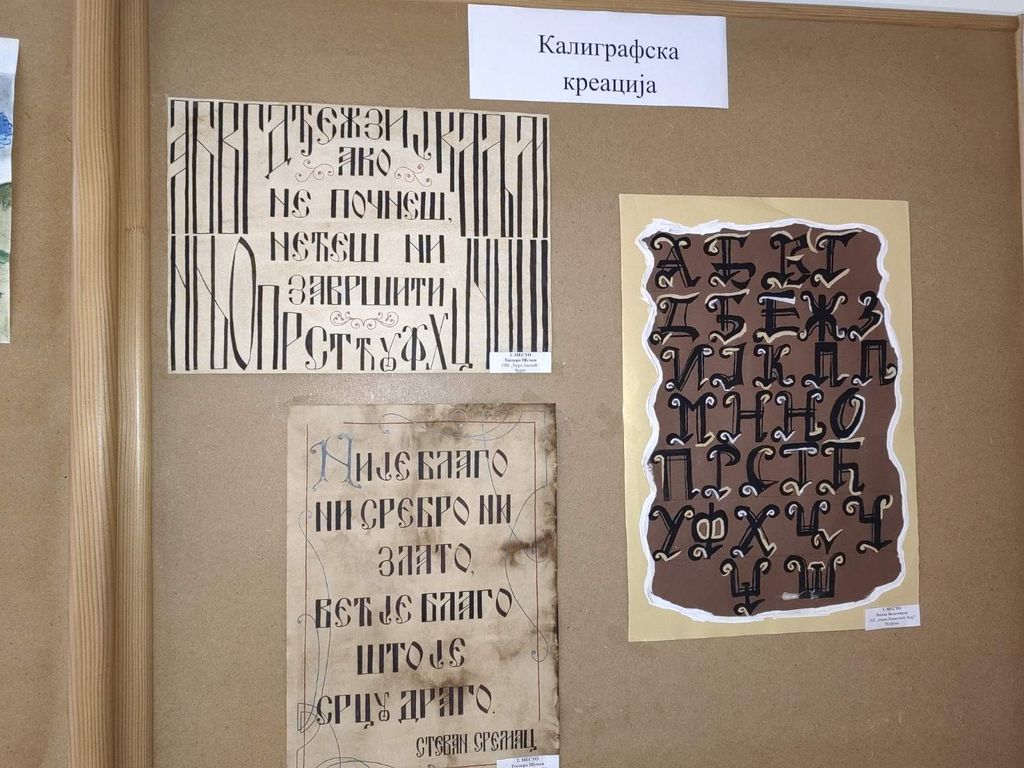 Калиграфска
креација
АБВГДЂЕЖЗИЈКЛЉМ
АКО
НЕ ПОЧНЕШ,
НЕЋЕШ НИ
ЗАВРШИТИ
НЊОПРСТЋУФХЦЧЏШ
1. МЕСТО
Теодора Шуман
Није благо
ни сребро ни
злато,
већ је благо
што је
срцу драго.
Стеван Сремац
2. МЕСТО
Теодора Шуман
А Б В Г
Д Ђ Е Ж З
И Ј К Л Љ
М Н Њ О
П Р С Т Ћ
У Ф Х Ц Ч
Џ Ш
3. МЕСТО